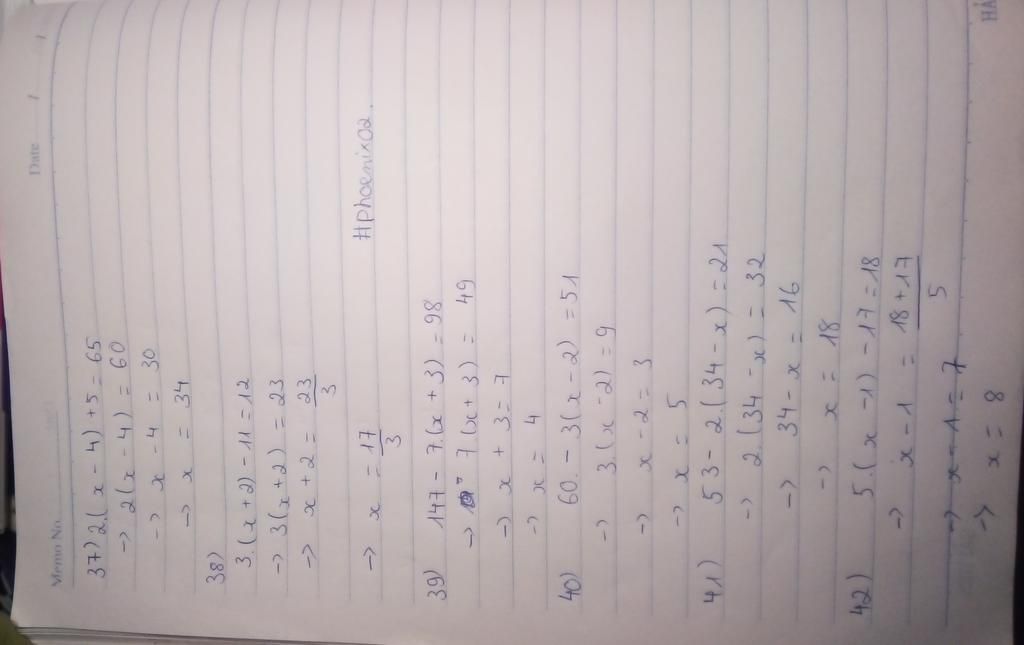 Memo No.
Date / /
37) 2.(x - 4) + 5 = 65
-> 2(x - 4) = 60
-> x - 4 = 30
-> x = 34
38)
3.(x + 2) - 11 = 12
-> 3(x + 2) = 23
-> x + 2 = 23/3
-> x = 17/3
#phoenix02.
39) 147 - 7.(x + 3) = 98
-> 7(x + 3) = 49
-> x + 3 = 7
-> x = 4
40) 60. - 3(x - 2) = 51
-> 3.(x - 2) = 9
-> x - 2 = 3
-> x = 5
41) 53 - 2.(34 - x) = 21
-> 2.(34 - x) = 32
-> 34 - x = 16
-> x = 18
42) 5.(x - 1) - 17 = 18
-> x - 1 = 18 + 17/5
-> x - 1 = 7
-> x = 8